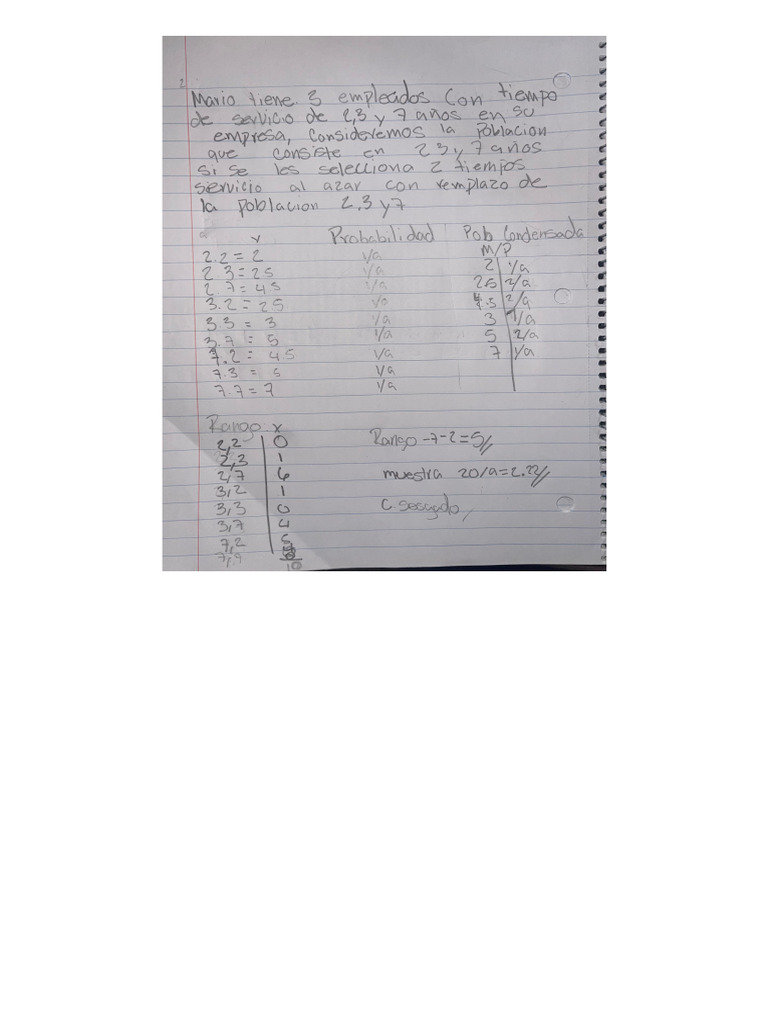 2
Mario tiene 3 empleados con tiempo
de servicio de 2,3 y 7 años en su
empresa, consideremos la poblacion
que consiste en 2 3 y 7 años
si se les selecciona 2 tiempos
servicio al azar con remplazo de
la poblacion 2,3 y 7
Probabilidad Pob Condensada
M/P
2.2 = 2 1/a 2 1/a
2 3 = 25 1/a 2.5 2/a
2 7 = 45 1/a 4.5 2/a
3.2 = 25 3 1/a
3.3 = 3 1/a 5 2/a
3.7 = 5 1/a 7 1/a
7.2 = 4.5 1/a
7.3 = 5 1/a
7.7 = 7 1/a
Rango x
2,2 0 Rango -7-2=5//
2,3 1
2,7 6 muestra 20/a=2.22//
3,2 1
3,3 0 C. Sesgado,
3,7 4
7,2 5
10